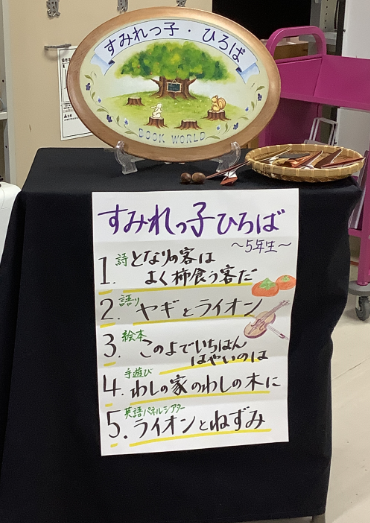 すみれっ子・ひろば
BOOK WORLD
すみれっ子ひろば
〜5年生〜
1. 詩 となりの客は
よく柿食う客だ
2. 語り ヤギとライオン
3. 絵本 このよでいちばん
はやいのは
4. 手遊び わしの家のわしの木に
5. 英語パネルシアター
ライオンとねずみ